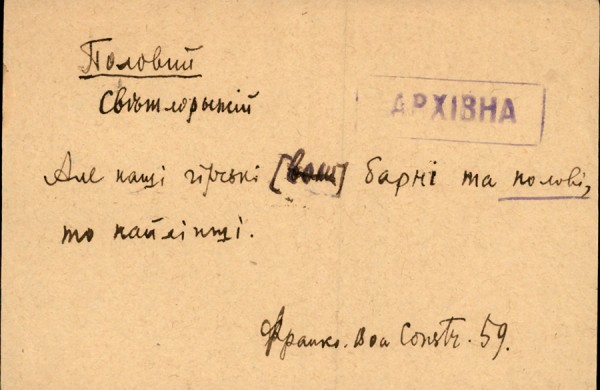 Половий
Свѣтлорыжій
АРХІВНА
Але наші гірські [воли] барні та полові,
то найліпші.
Франко. Boa Constr. 59.